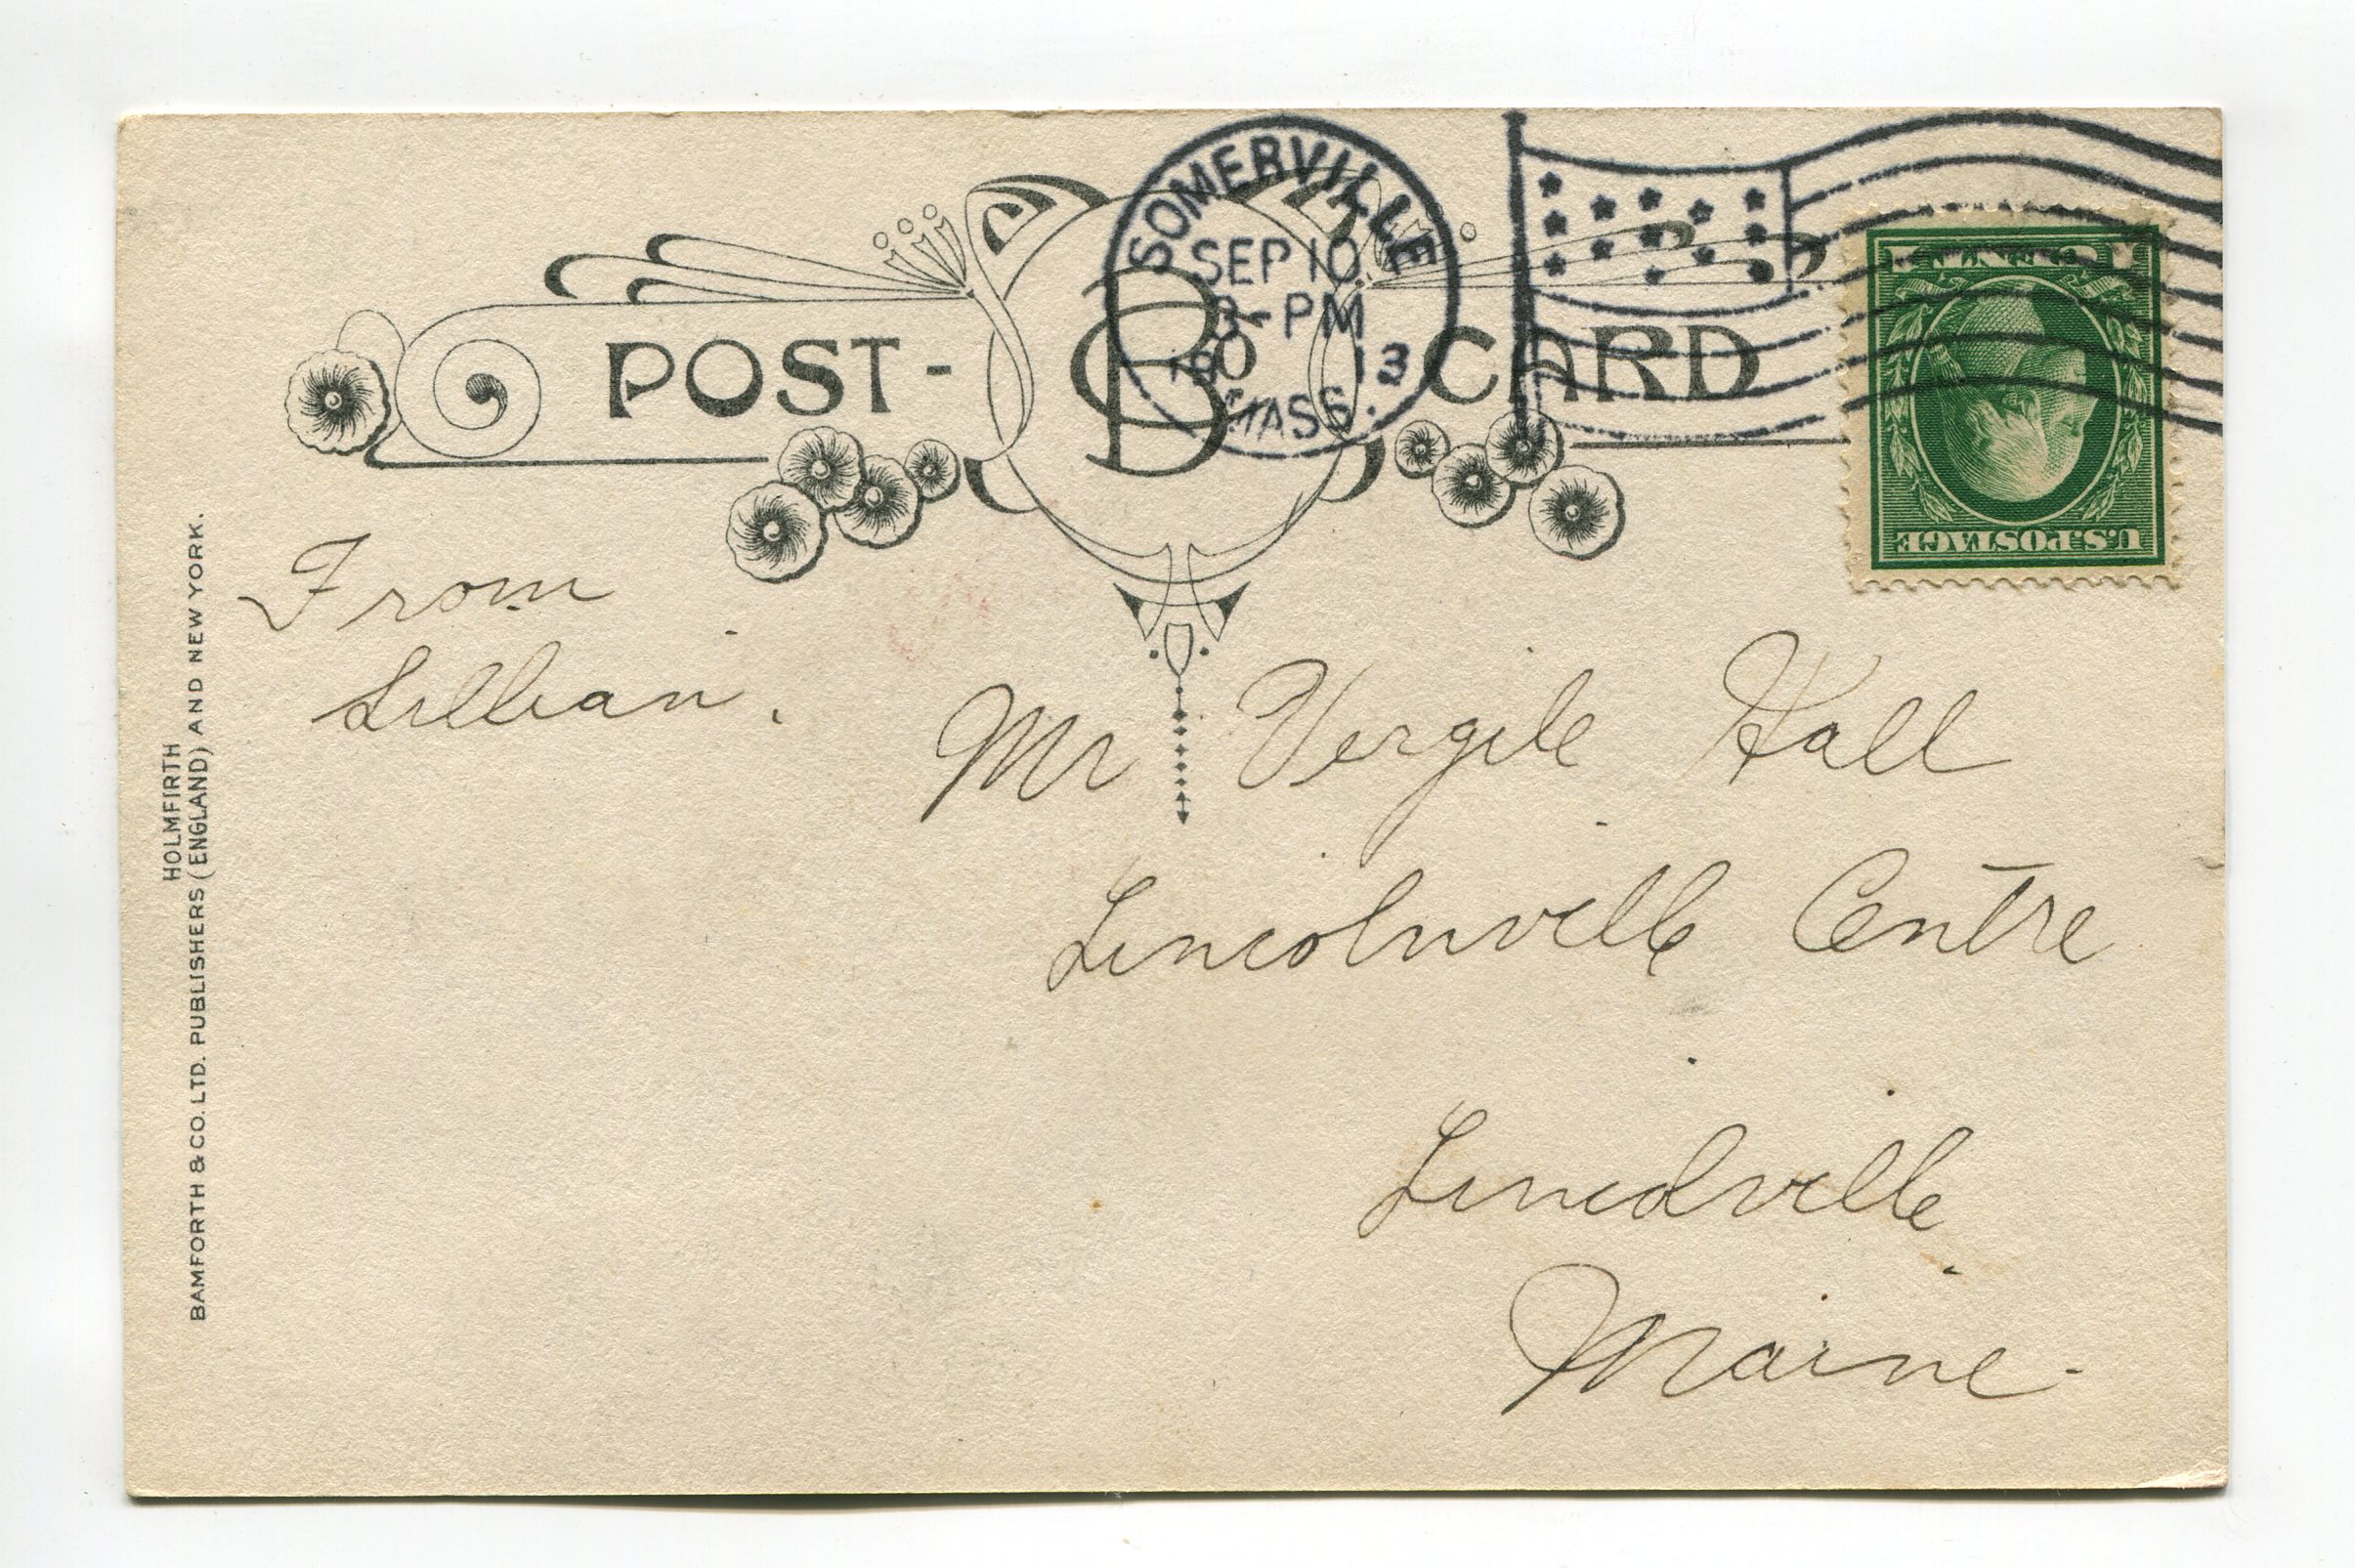 POST-CARD
B Co
SOMERVILLE
SEP 10
8-PM
1913
MASS.
U.S.POSTAGE
HOLMFIRTH
BAMFORTH & CO. LTD. PUBLISHERS (ENGLAND) AND NEW YORK.
From
Lillian.
Mr Vergile Hall
Lincolnville Centre
Lincolville
Maine-